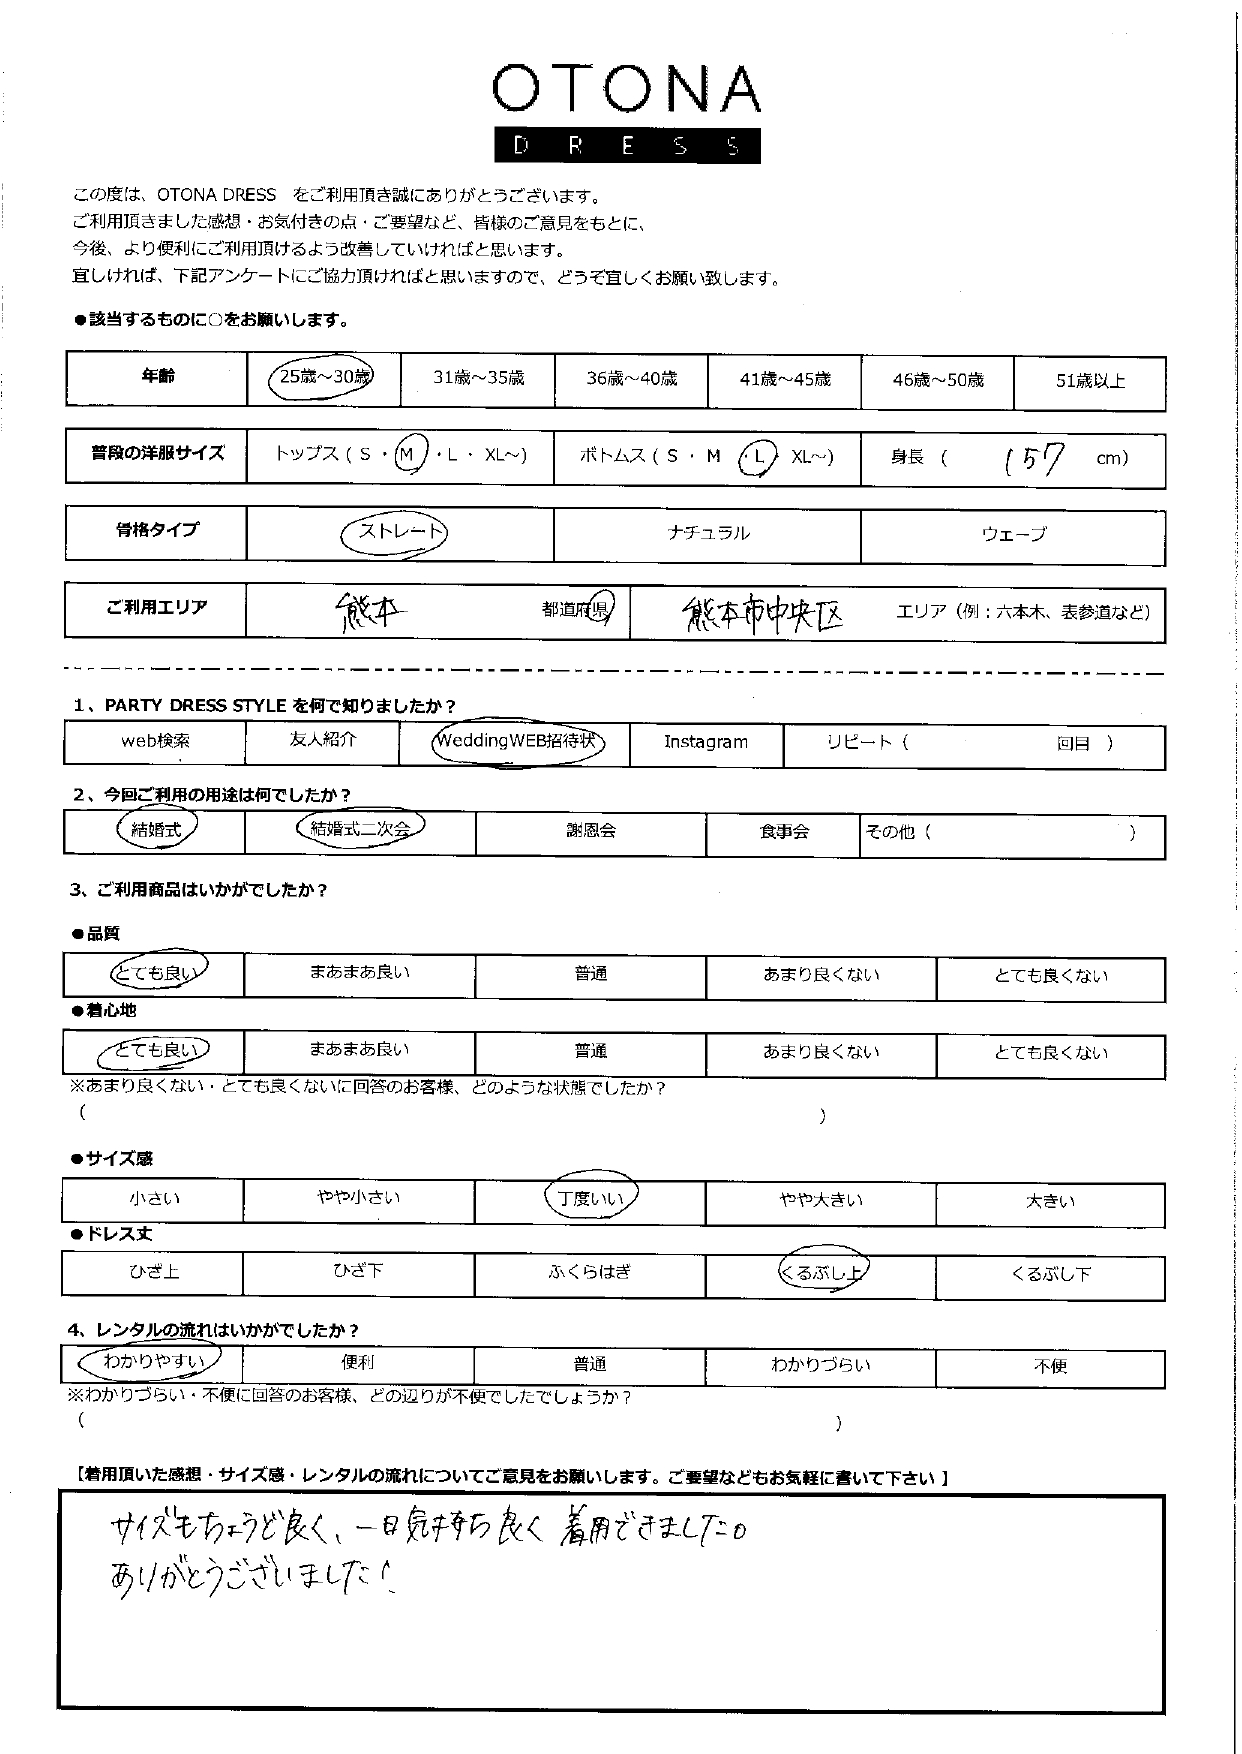 OTONA
DRESS
この度は、OTONA DRESS をご利用頂き誠にありがとうございます。
ご利用頂きました感想・お気付きの点・ご要望など、皆様のご意見をもとに、
今後、より便利にご利用頂けるよう改善していければと思います。
宜しければ、下記アンケートにご協力頂ければと思いますので、どうぞ宜しくお願い致します。
●該当するものに○をお願いします。
年齢 25歳～30歳 31歳～35歳 36歳～40歳 41歳～45歳 46歳～50歳 51歳以上
普段の洋服サイズ トップス ( S ・ M ・ L ・ XL～) ボトムス ( S ・ M ・ L XL～) 身長 ( 157 cm)
骨格タイプ ストレート ナチュラル ウェーブ
ご利用エリア 熊本 都道府県 熊本市中央区 エリア（例：六本木、表参道など）
1、PARTY DRESS STYLE を何で知りましたか？
web検索 友人紹介 WeddingWEB招待状 Instagram リピート ( 回目 )
2、今回ご利用の用途は何でしたか？
結婚式 結婚式二次会 謝恩会 食事会 その他 ( )
3、ご利用商品はいかがでしたか？
●品質
とても良い まあまあ良い 普通 あまり良くない とても良くない
●着心地
とても良い まあまあ良い 普通 あまり良くない とても良くない
※あまり良くない・とても良くないに回答のお客様、どのような状態でしたか？
( )
●サイズ感
小さい やや小さい 丁度いい やや大きい 大きい
●ドレス丈
ひざ上 ひざ下 ふくらはぎ くるぶし上 くるぶし下
4、レンタルの流れはいかがでしたか？
わかりやすい 便利 普通 わかりづらい 不便
※わかりづらい・不便に回答のお客様、どの辺りが不便でしたでしょうか？
( )
【着用頂いた感想・サイズ感・レンタルの流れについてご意見をお願いします。ご要望などもお気軽に書いて下さい】
サイズもちょうど良く、一日気持ち良く着用できました。
ありがとうございました！